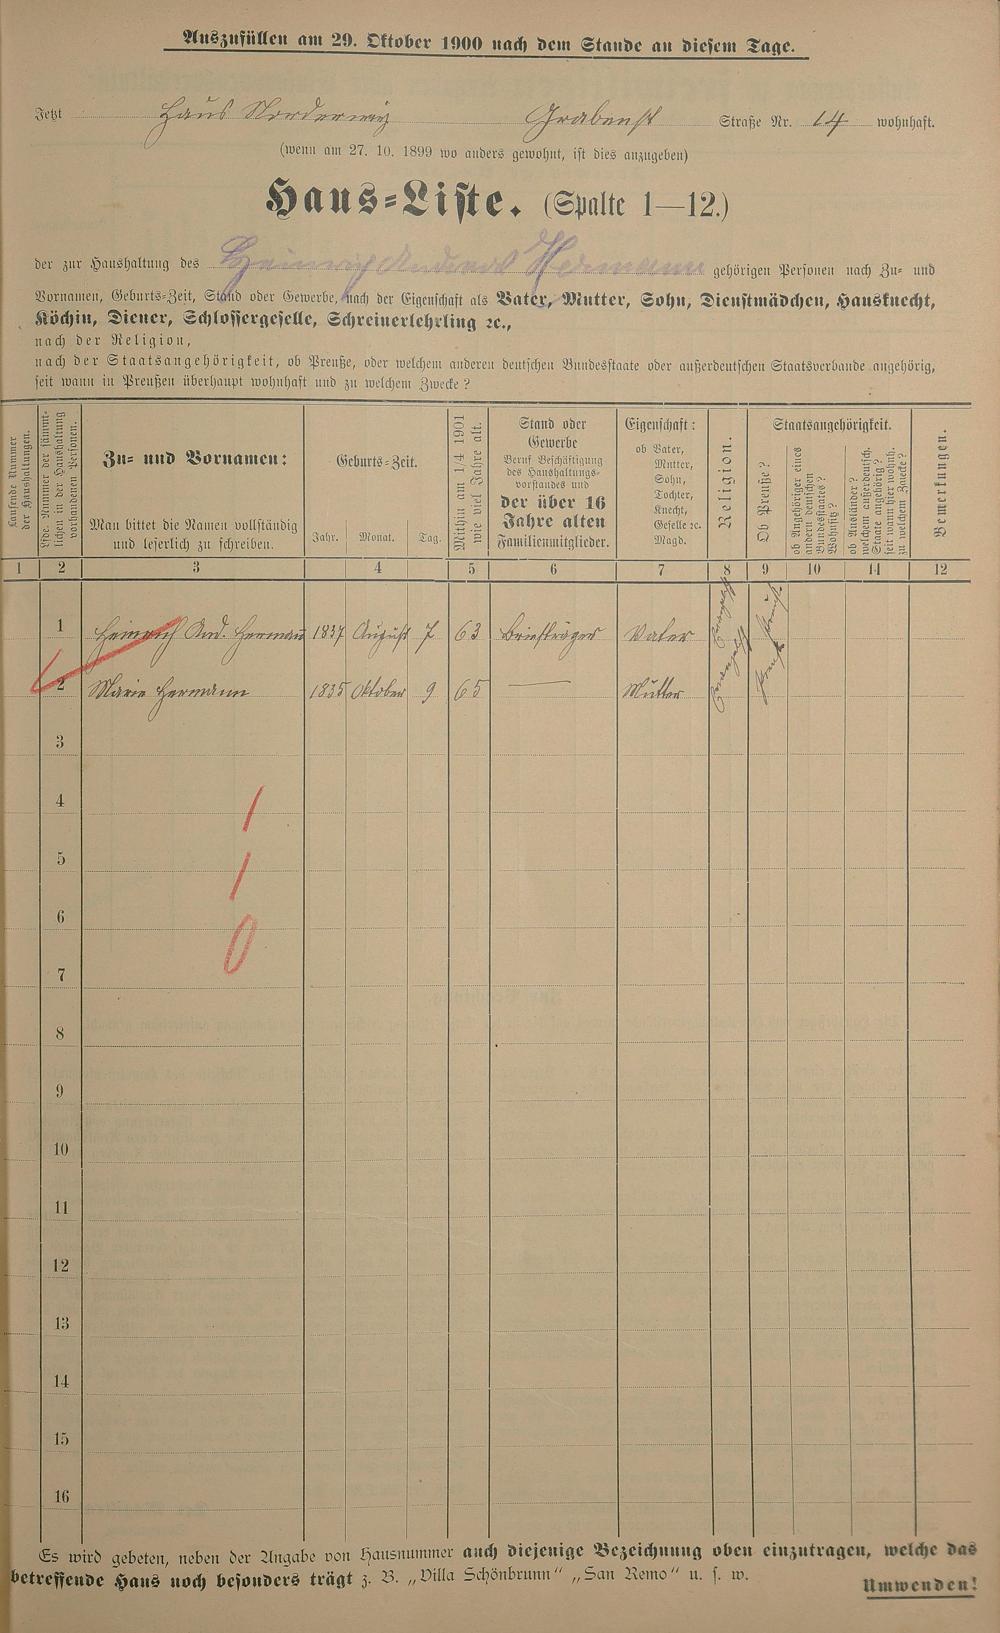 Auszufüllen am 29. Oktober 1900 nach dem Stande an diesem Tage.
Jetzt Haus Norderwig Grabenst Straße Nr. 14 wohnhaft.
(wenn am 27. 10. 1899 wo anders gewohnt, ist dies anzugeben)
Haus-Liste. (Spalte 1—12.)
der zur Haushaltung des Heinrich Andreas Hermann gehörigen Personen nach Zu- und
Vornamen, Geburts-Zeit, Stand oder Gewerbe, nach der Eigenschaft als Vater, Mutter, Sohn, Dienstmädchen, Hausknecht,
Köchin, Diener, Schlossergeselle, Schreinerlehrling ꝛc.,
nach der Religion,
nach der Staatsangehörigkeit, ob Preuße, oder welchem anderen deutschen Bundesstaate oder außerdeutschen Staatsverbande angehörig,
seit wann in Preußen überhaupt wohnhaft und zu welchem Zwecke?
Laufende Nummer
der Haushaltungen.
Lfde. Nummer der sämmt-
lichen in der Haushaltung
vorhandenen Personen.
Zu- und Vornamen:
Man bittet die Namen vollständig
und leserlich zu schreiben.
Geburts-Zeit.
Jahr. Monat. Tag.
Mithin am 1/4 1901
wie viel Jahre alt.
Stand oder
Gewerbe
Beruf Beschäftigung
des Haushaltungs-
vorstandes und
der über 16
Jahre alten
Familienmitglieder.
Eigenschaft:
ob Vater,
Mutter,
Sohn,
Tochter,
Knecht,
Geselle ꝛc.
Magd.
Religion.
Staatsangehörigkeit.
Ob Preuße?
ob Angehöriger eines
andern deutschen
Bundesstaates?
Wohnsitz?
ob Ausländer?
welchem außerdeutsch.
Staate angehörig?
seit wann hier wohnh.
zu welchem Zwecke?
Bemerkungen.
1 2 3 4 5 6 7 8 9 10 11 12
1 Heinrich And. Hermann 1837 August 7 63 Briefträger Vater Evangelisch Preuße
2 Marie Hermann 1835 Oktober 9 65 — Mutter Evangelisch Preuße
3
4
1
5
1
6
0
7
8
9
10
11
12
13
14
15
16
Es wird gebeten, neben der Angabe von Hausnummer auch diejenige Bezeichnung oben einzutragen, welche das
betreffende Haus noch besonders trägt z. B. „Villa Schönbrunn“ „San Remo“ u. s. w.
Umwenden!